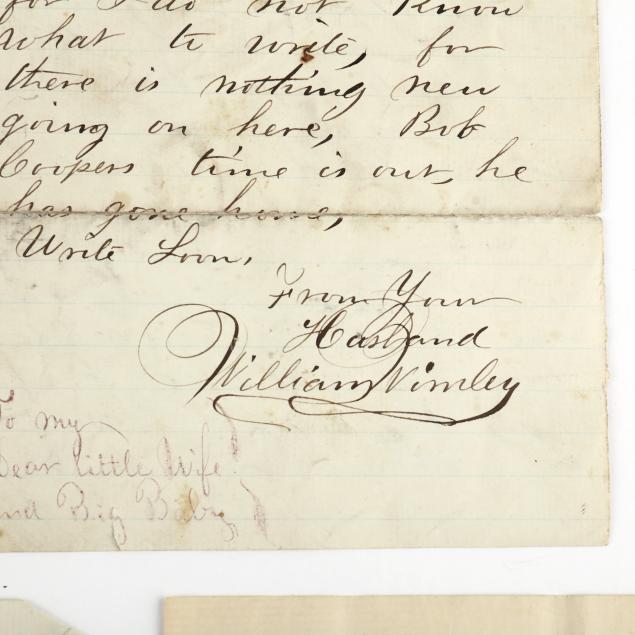 for I do not Know
what to write, for
there is nothing new
going on here, Bob
Coopers time is out, he
has gone home,
Write Soon,
From Your
Husband
William Nimley
To my
Dear little Wife
and Big Baby